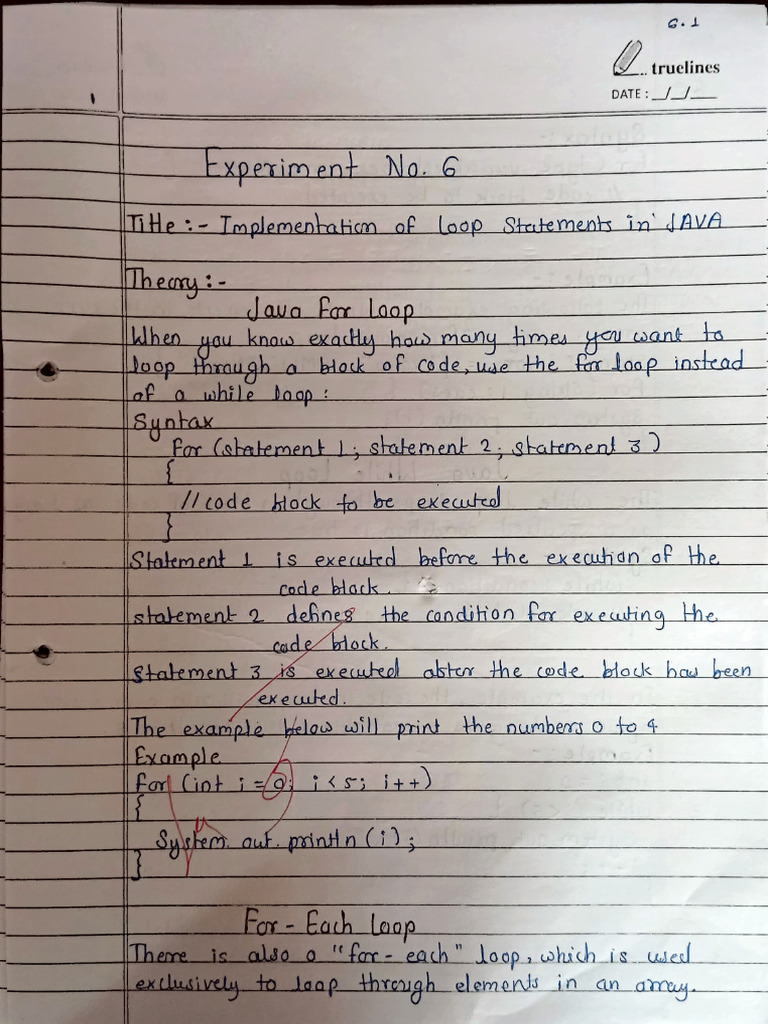 6.1
truelines
DATE: __/__/___
1
Experiment No. 6
Title :- Implementation of Loop Statements in JAVA
Theory :-
Java For Loop
When you know exactly how many times you want to
loop through a block of code, use the for loop instead
of a while loop :
Syntax
for (statement 1; statement 2; statement 3)
{
// code block to be executed
}
Statement 1 is executed before the execution of the
code block.
statement 2 defines the condition for executing the
code block.
Statement 3 is executed abter the code block haw been
executed.
The example below will print the numbers 0 to 4
Example
for (int i = 0; i < 5; i++)
{
System. out. println (i);
}
For - Each Loop
There is also a "for - each" loop, which is used
exclusively to loop through elements in an array.